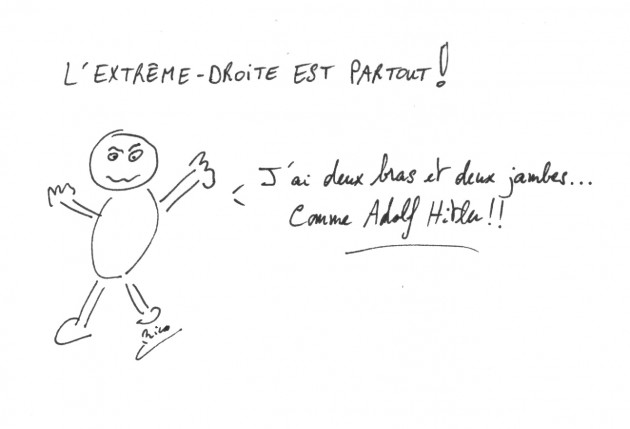 L'EXTRÊME-DROITE EST PARTOUT!
J'ai deux bras et deux jambes...
Comme Adolf Hitler!!